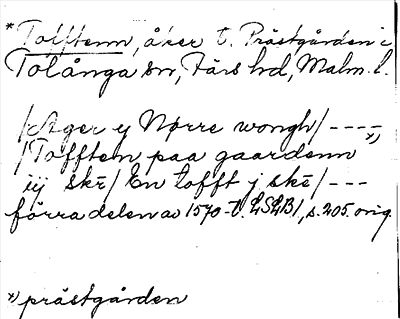 *Tolftenn, åker t. Prästgården i
Tolånga sn, Färs hd, Malm. l.
/Ager y Nørre wongh/ ----
/Tofften paa gaardenn x)
iij skē/ En tofft j skē/ ---
förra delen av 1570-t. LSLB/, s. 205. orig.
x) prästgården